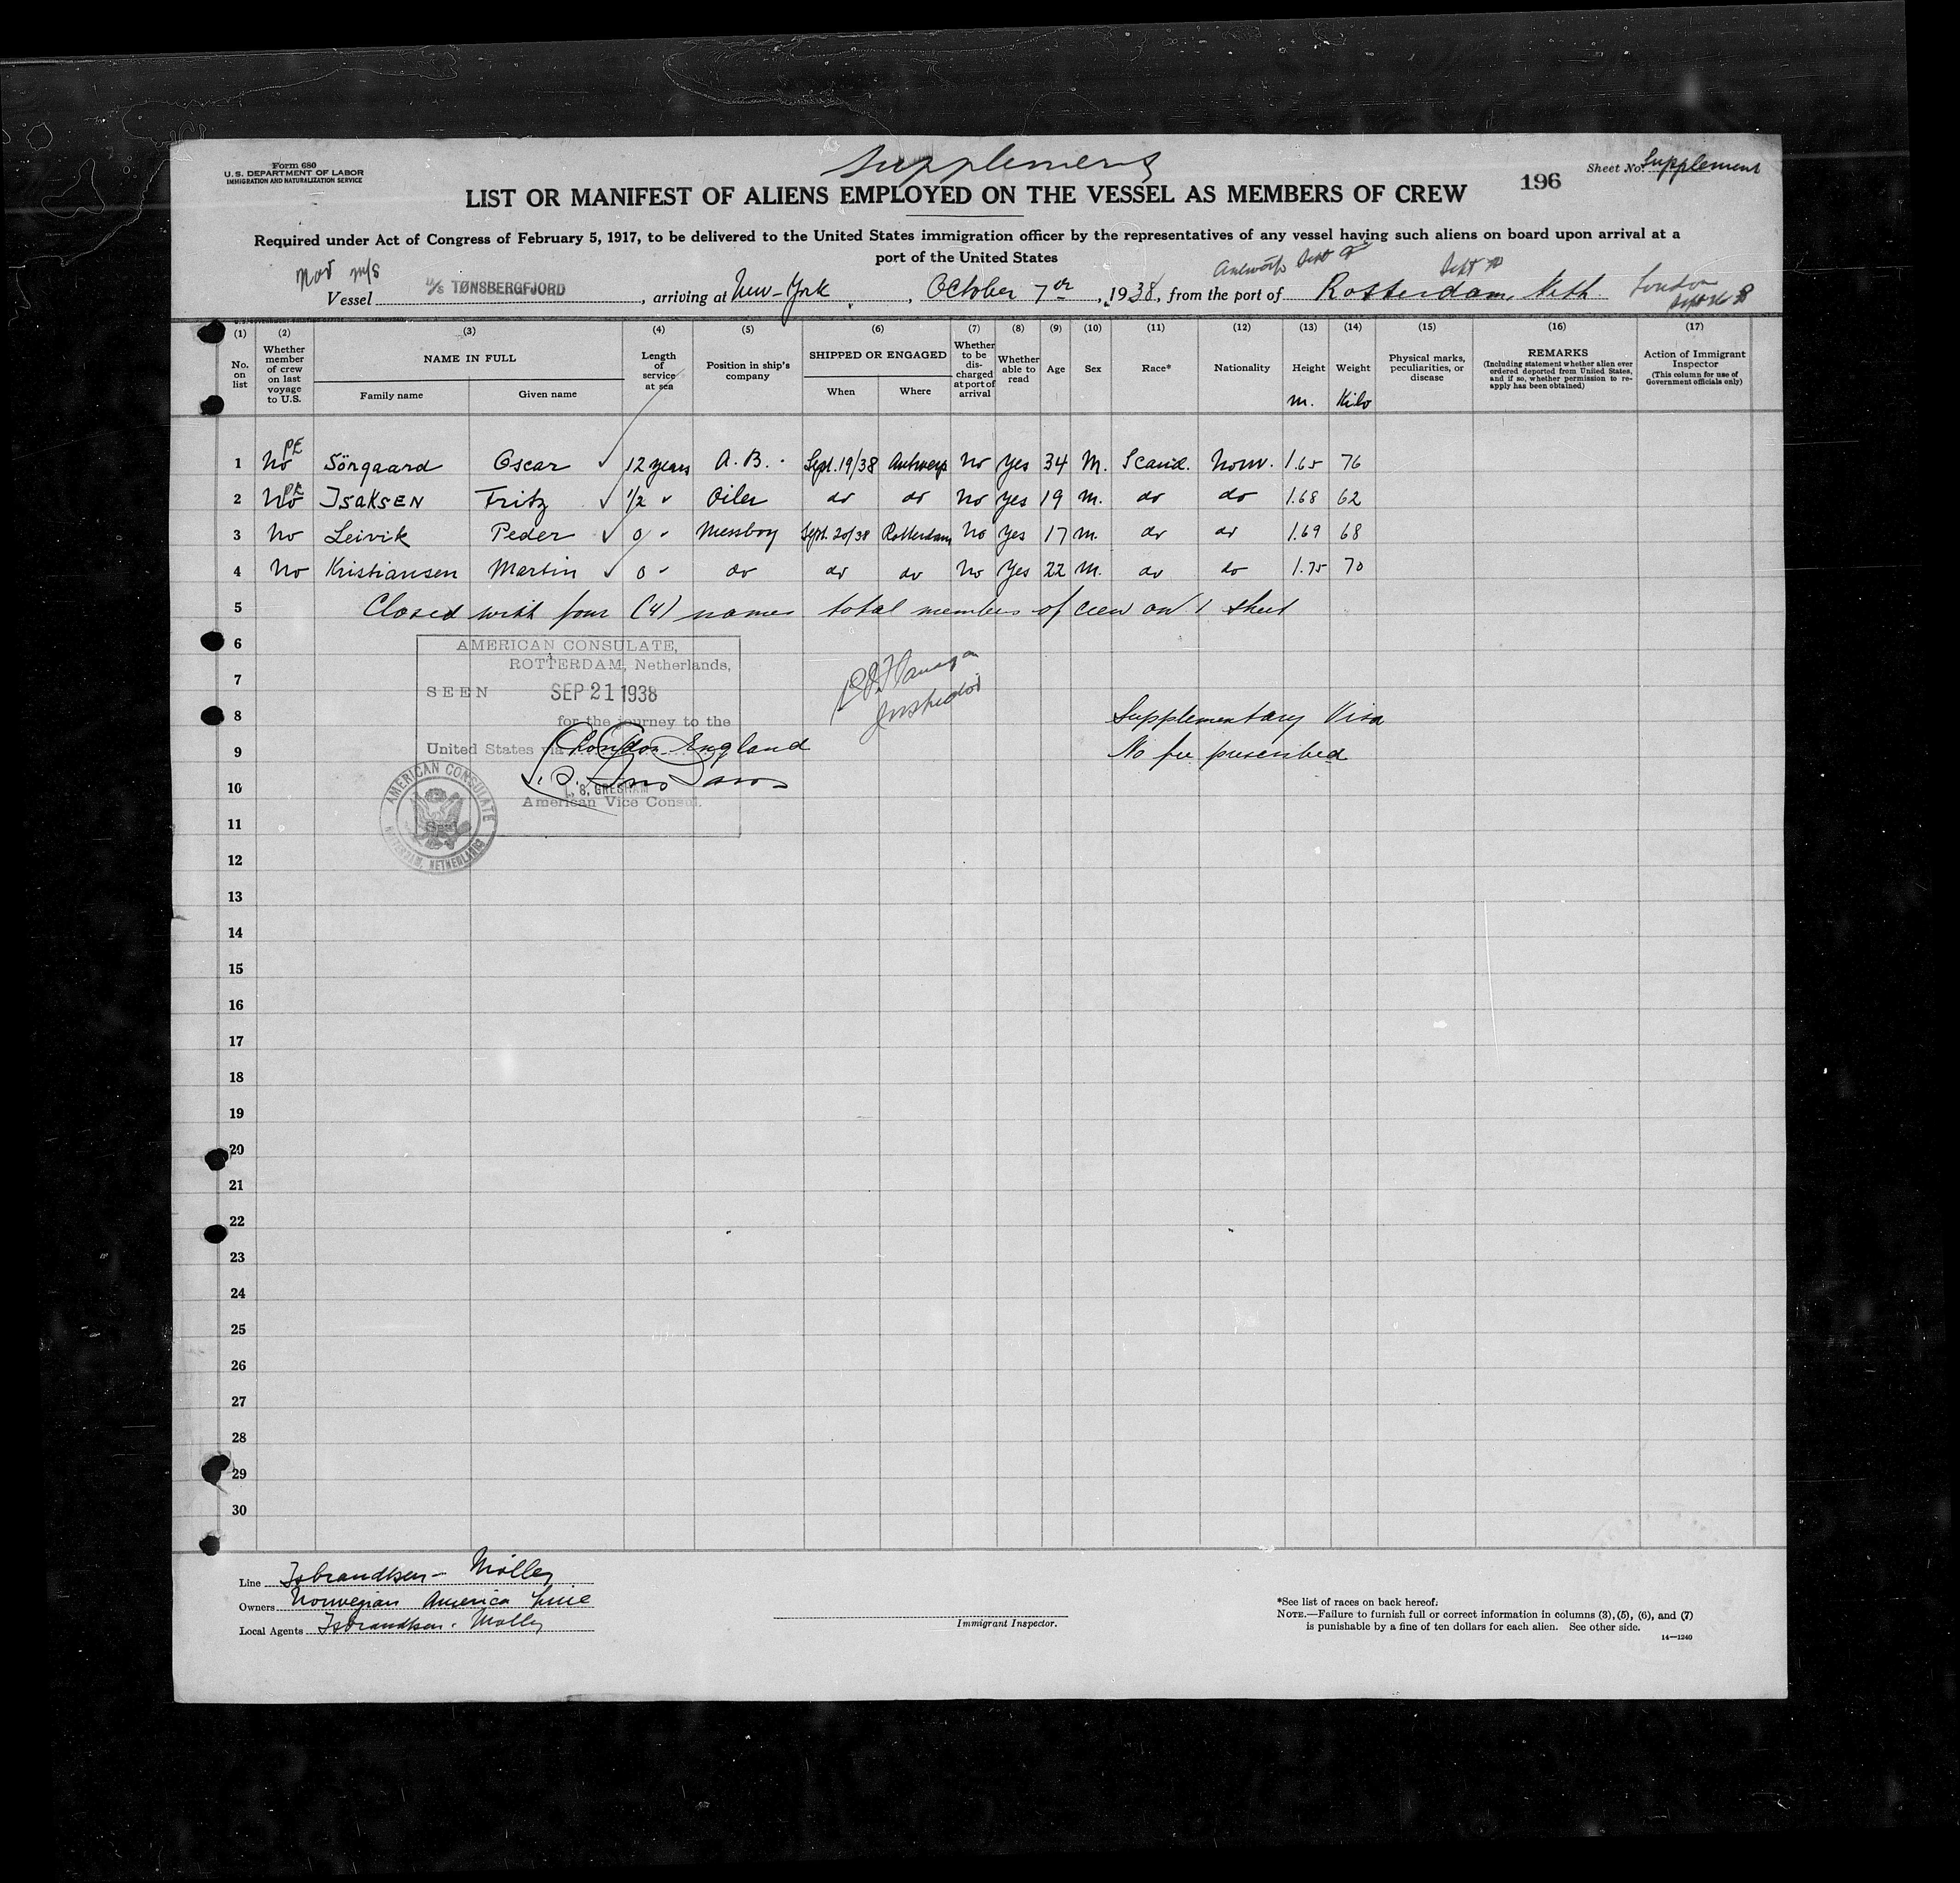 Supplement
Form 680
U.S. DEPARTMENT OF LABOR
IMMIGRATION AND NATURALIZATION SERVICE
Sheet No. Supplement
196
LIST OR MANIFEST OF ALIENS EMPLOYED ON THE VESSEL AS MEMBERS OF CREW
Required under Act of Congress of February 5, 1917, to be delivered to the United States immigration officer by the representatives of any vessel having such aliens on board upon arrival at a
port of the United States
Nor m/s
Antwerp Sept
Sept
London
Vessel M/S TØNSBERGFJORD, arriving at New-York, October 7th, 1938, from the port of Rotterdam, Neth
(1) (2) (3) (4) (5) (6) (7) (8) (9) (10) (11) (12) (13) (14) (15) (16) (17)
No. on list
Whether member of crew on last voyage to U.S.
NAME IN FULL
Family name
Given name
Length of service at sea
Position in ship's company
SHIPPED OR ENGAGED
When
Where
Whether to be discharged at port of arrival
Whether able to read
Age
Sex
Race*
Nationality
Height
m.
Weight
Kilo
Physical marks, peculiarities, or disease
REMARKS
(Including statement whether alien ever ordered deported from United States, and if so, whether permission to reapply has been obtained)
Action of Immigrant Inspector
(This column for use of Government officials only)
1 No PE Sörgaard Oscar ✓ 12 years A. B. Sept. 19/38 Antwerp No Yes 34 M. Scand. Norw. 1.65 76
2 No PE Isaksen Fritz ✓ 1/2 " Oiler do do No Yes 19 M. do do 1.68 62
3 No Leivik Peder ✓ 0 " Messboy Sept. 20/38 Rotterdam No Yes 17 M. do do 1.69 68
4 No Kristiansen Martin ✓ 0 " do do do No Yes 22 M. do do 1.75 70
5 Closed with four (4) names total members of crew on 1 sheet
6
7
8
9
10
11
12
13
14
15
16
17
18
19
20
21
22
23
24
25
26
27
28
29
30
AMERICAN CONSULATE,
ROTTERDAM, Netherlands,
SEEN SEP 21 1938
for the journey to the
United States via London England
GRESHAM
American Vice Consul.
AMERICAN CONSULATE
ROTTERDAM, NETHERLANDS
Seal
Inspector
Supplementary Visa
No fee prescribed
Line Isbrandtsen - Möller
Owners Norwegian America Line
Local Agents Isbrandtsen - Moller
Immigrant Inspector.
*See list of races on back hereof.
NOTE.—Failure to furnish full or correct information in columns (3), (5), (6), and (7)
is punishable by a fine of ten dollars for each alien. See other side.
14—1240